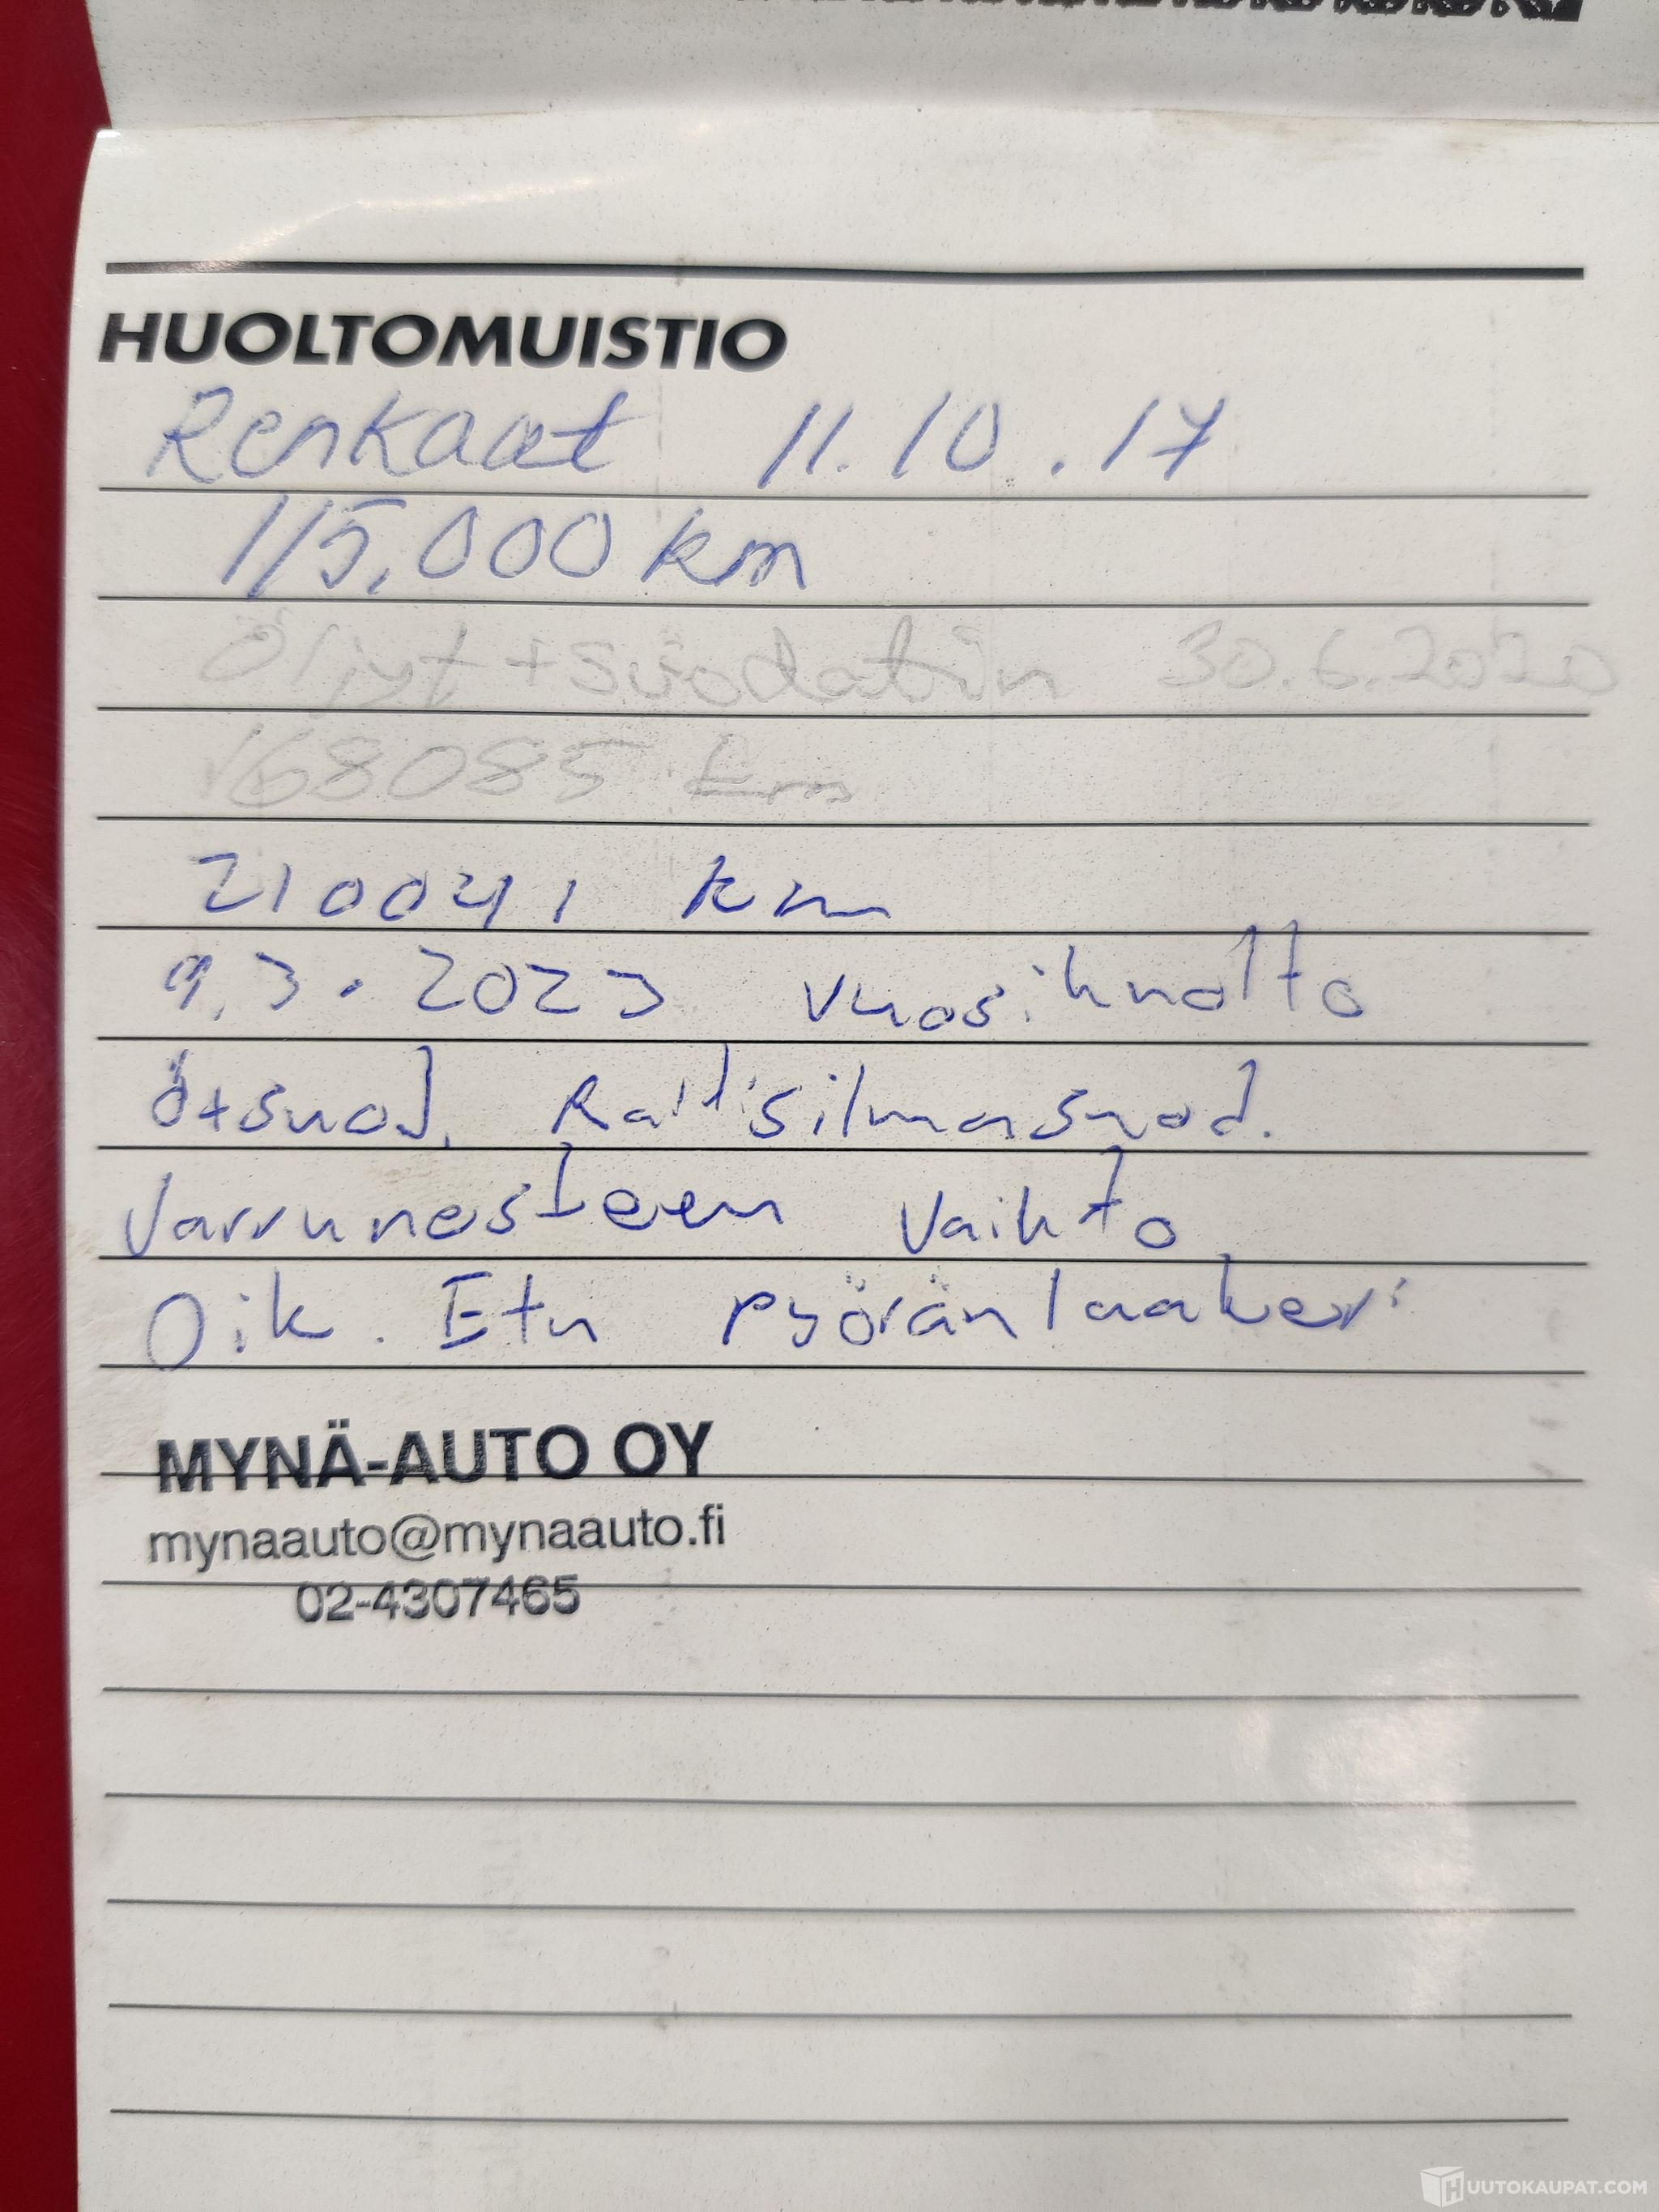 HUOLTOMUISTIO
Renkaat 11.10.17
115.000 km
Öljyt + suodatin 30.6.2020
168085 km
210041 km
9.3.2023 vuosihuolto
Ö+suod. Raitisilmasuod.
Jarrunesteen vaihto
Oik. Etu pyöränlaakeri
MYNÄ-AUTO OY
mynaauto@mynaauto.fi
02-4307465
HUUTOKAUPAT.COM